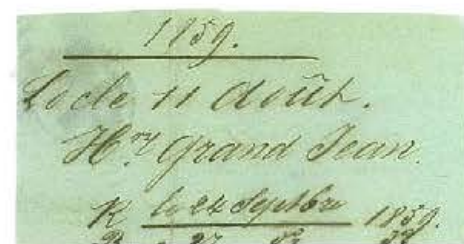 1859.
Locle 11 Août.
Hry Grand Jean.
R le 24 Septbre 1859.